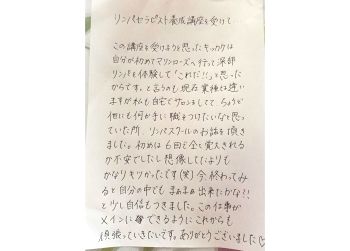 リンパセラピスト養成講座を受けて…
この講座を受けようと思ったキッカケは
自分が初めてマリンローズへ行って深部
リンパを体験して「これだ!!」と思った
からです。と言うのも現在業種は違い
ますが私も自宅でサロンをしてて ちょうど
他にも何か手に職をつけたいなと思っ
ていた所、リンパスクールのお話を頂き
ました。初めは6回で全て覚えきれる
か不安でしたし想像してたよりも
かなりキツかったです(笑)今終わってみ
ると自分の中でもまぁまぁ出来たかな!!
と少し自信もつきました。この仕事が
メインにできるようにこれからも
頑張っていきたいです。ありがとうございました♡